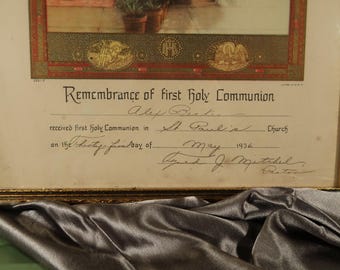 Remembrance of first Holy Communion
Alex
received first Holy Communion in St Paul's Church
on the Thirty first day of May 1936
J. Mitchel
Pastor